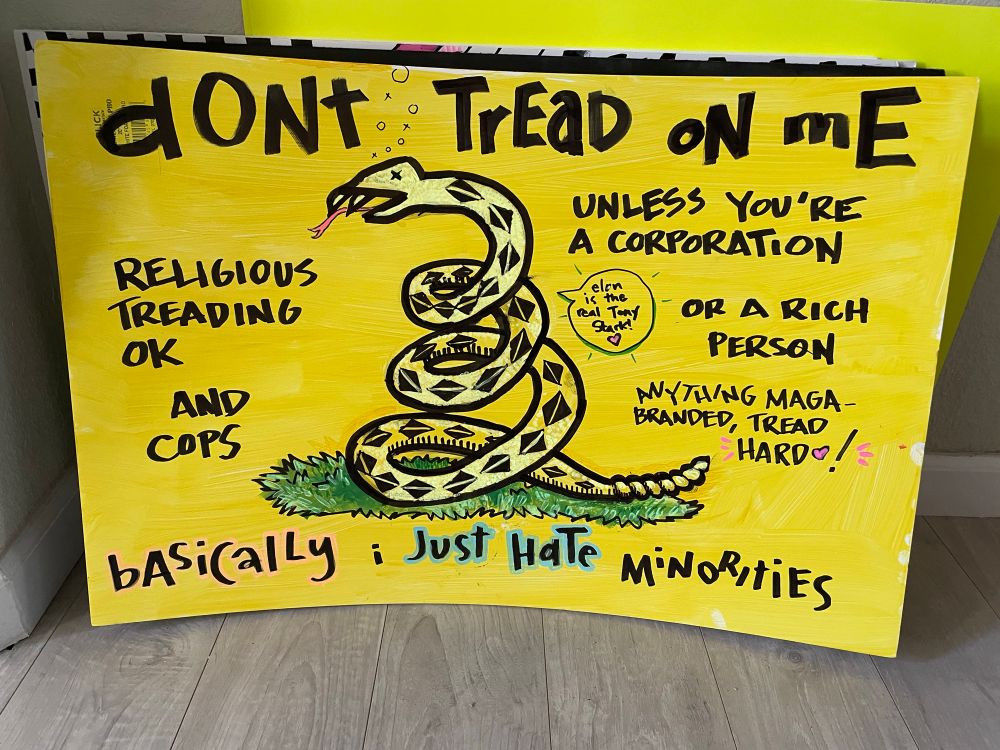 dONt TrEaD oN mE
UNLESS YOU'RE
A CORPORATION
RELIGIOUS
TREADING
OK
elon
is the
real Tony
Stark!
OR A RICH
PERSON
AND
COPS
ANYTHING MAGA-
BRANDED, TREAD
HARD!
bASiCaLLy i Just HaTe MiNORiTiES